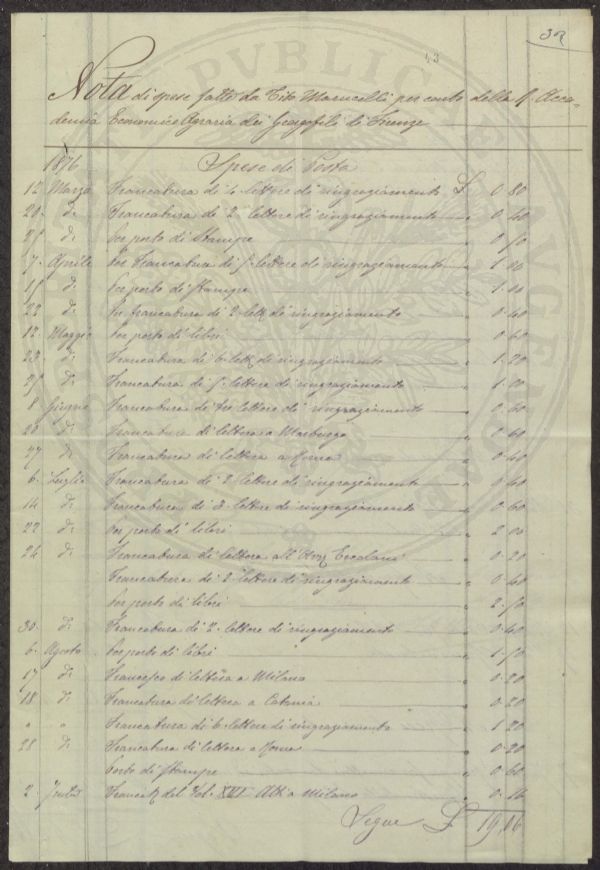 32
43
Nota di spese fatte da Tito Marucelli per conto della R. Acca-
demia Economico Agraria dei Georgofili di Firenze
1876 Spese di Posta
12 Marzo Francatura di 4 lettere di ringraziamento £ 0 80
20 di Francatura di 2 lettere di ringraziamento " 0 40
25 di Per porto di Stampe " 0 50
7 Aprile Per Francatura di 5 lettere di ringraziamento " 1 00
15 di Per porto di Stampe " 1 00
22 di Per francatura di 2 lett. di ringraziamento " 0 40
12 Maggio Per porto di libri " 0 60
22 di Francatura di 6 lett. di ringraziamento " 1 20
25 di Francatura di 5 lettere di ringraziamento " 1 00
8 Giugno Francatura di tre lettere di ringraziamento " 0 60
20 di Francatura di lettera a Marburgo " 0 60
27 di Francatura di lettera a Roma " 0 40
6 Luglio Francatura di 2 lettere di ringraziamento " 0 40
14 di Francatura di 3 lettere di ringraziamento " 0 60
22 di Per porto di libri " 2 00
24 di Francatura di lettera all' Ercolani " 0 20
Francatura di 2 lettere di ringraziamento " 0 40
Per porto di libri " 2 50
30 di Francatura di 2 lettere di ringraziamento " 0 40
6 Agosto Per porto di libri " 1 50
17 di di lettera a Milano " 0 20
18 di Francatura di lettera a Catania " 0 20
" " Francatura di 6 lettere di ringraziamento " 1 20
28 di Francatura di lettera a Roma " 0 20
Porto di Stampe " 0 60
2 del Vol. XVI Atti a Milano " 0 16
Segue £ 19,06